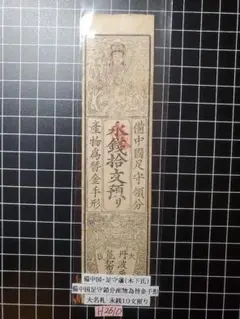 備中國足守領分
永錢拾文預り
産物為替金手形
備中国・足守藩(木下氏)
備中國足守領分産物為替金手形
大名札・永銭10文預り
H2610